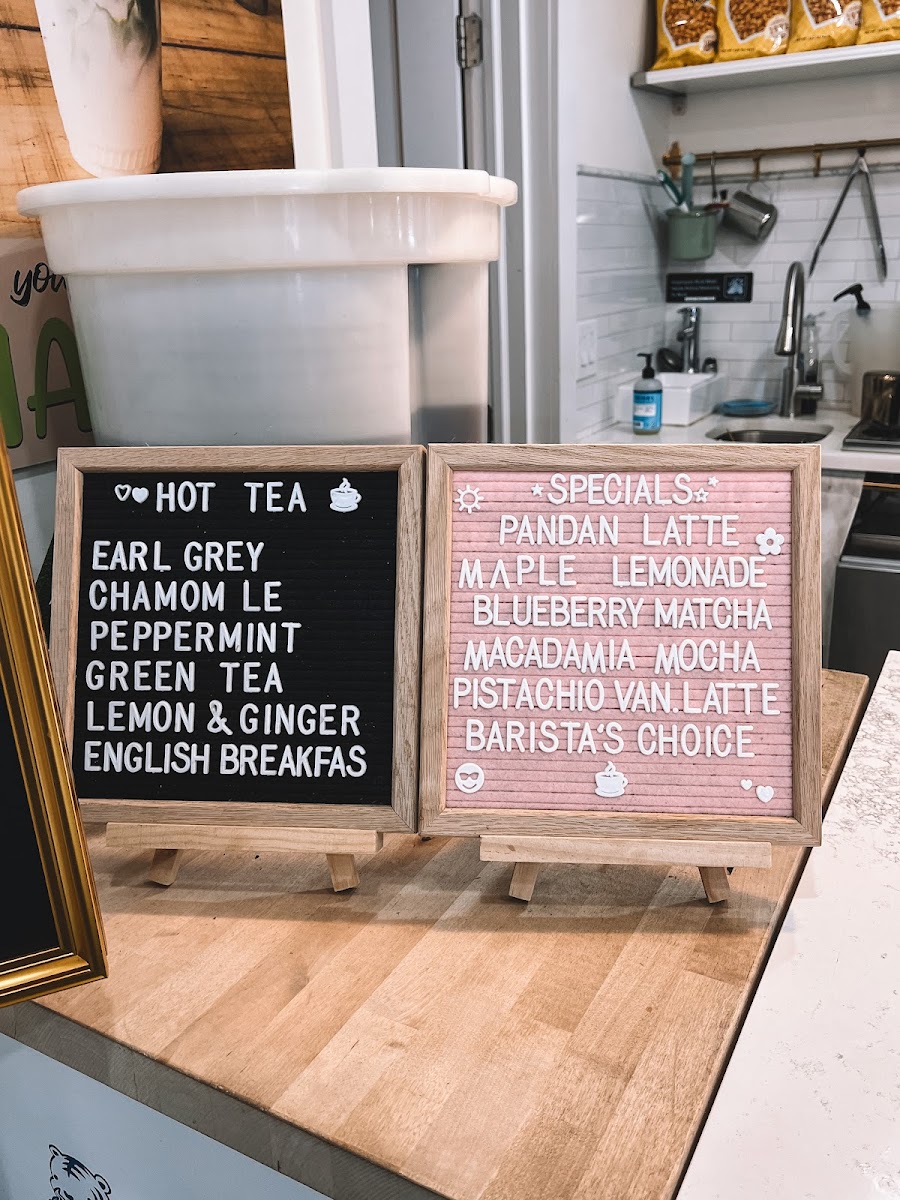 HOT TEA
EARL GREY
CHAMOM LE
PEPPERMINT
GREEN TEA
LEMON & GINGER
ENGLISH BREAKFAS
SPECIALS
PANDAN LATTE
MAPLE LEMONADE
BLUEBERRY MATCHA
MACADAMIA MOCHA
PISTACHIO VAN.LATTE
BARISTA'S CHOICE